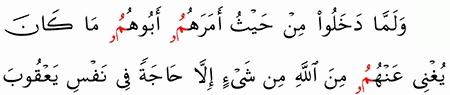 وَلَمَّا دَخَلُواْ مِنْ حَيْثُ أَمَرَهُمُۥ أَبُوهُمُۥ مَا كَانَ
يُغْنِى عَنْهُمُۥ مِنَ اَللَّهِ مِن شَىْءٍ إِلَّا حَاجَةً فِى نَفْسِ يَعْقُوبَ